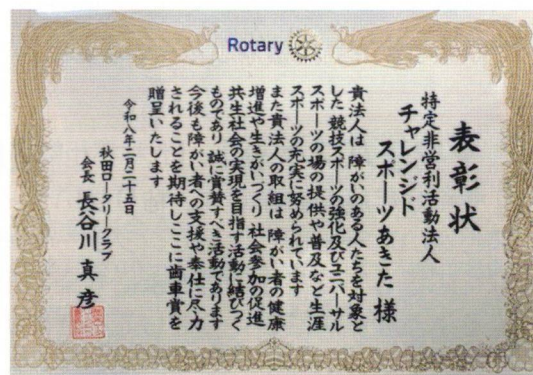 Rotary
表彰状
特定非営利活動法人
チャレンジド
スポーツあきた 様
貴法人は 障がいのある人たちを対象と
した 競技スポーツの強化及びユニバーサル
スポーツの場の提供や普及など生涯
スポーツの充実に努められています
また貴法人の取組は 障がい者の健康
増進や生きがいづくり 社会参加の促進
共生社会の実現を目指す活動に結びつく
ものであり 誠に賞賛すべき活動であります
今後も障がい者への支援や奉仕に尽力
されることを期待しここに歯車賞を
贈呈いたします
令和八年二月二十五日
秋田ロータリークラブ
会長 長谷川 真彦